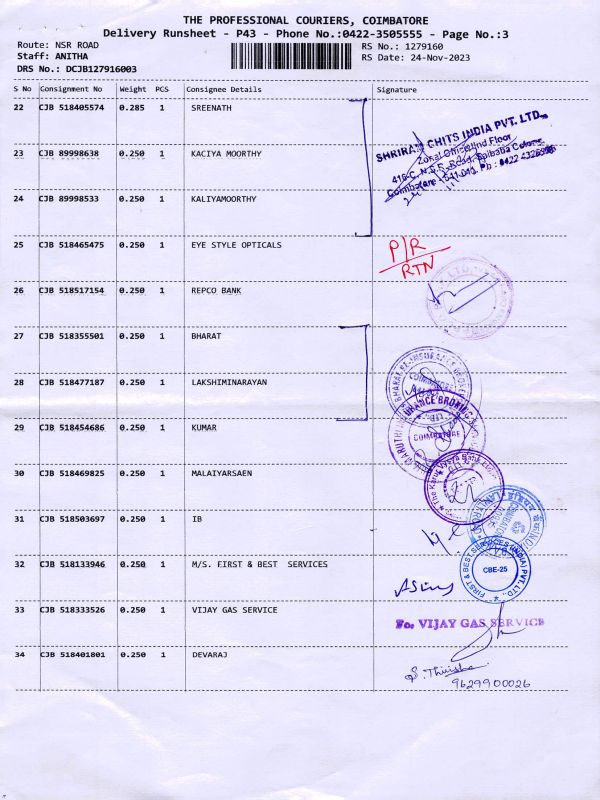 THE PROFESSIONAL COURIERS, COIMBATORE
Delivery Runsheet - P43 - Phone No.:0422-3505555 - Page No.:3
Route: NSR ROAD RS No.: 1279160
Staff: ANITHA RS Date: 24-Nov-2023
DRS No.: DCJB127916003
S No Consignment No Weight PCS Consignee Details Signature
22 CJB 518405574 0.285 1 SREENATH
SHRIRAM CHITS INDIA PVT. LTD.,
23 CJB 89998638 0.250 1 KACIYA MOORTHY
24 CJB 89998533 0.250 1 KALIYAMOORTHY
25 CJB 518465475 0.250 1 EYE STYLE OPTICALS P/R
RTN
26 CJB 518517154 0.250 1 REPCO BANK
27 CJB 518355501 0.250 1 BHARAT
28 CJB 518477187 0.250 1 LAKSHIMINARAYAN
29 CJB 518454686 0.250 1 KUMAR COIMBATORE
30 CJB 518469825 0.250 1 MALAIYARSAEN
31 CJB 518503697 0.250 1 IB
32 CJB 518133946 0.250 1 M/S. FIRST & BEST SERVICES
FIRST & BEST SERVICES (INDIA) PVT. LTD.,
CBE-25
33 CJB 518333526 0.250 1 VIJAY GAS SERVICE For VIJAY GAS SERVICE
34 CJB 518401801 0.250 1 DEVARAJ
9629900026